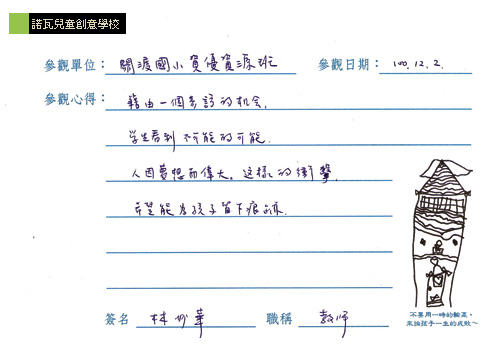 諾瓦兒童創意學校
參觀單位：關渡國小資優資源班 參觀日期：100.12.2.
參觀心得：藉由一個參訪的机会,
学生看到不可能的可能.
人因夢想而偉大。这樣的衝擊,
希望能為孩子留下痕跡.
簽名 林 華 職稱 教师
不要用一時的輸贏，
來論孩子一生的成敗～